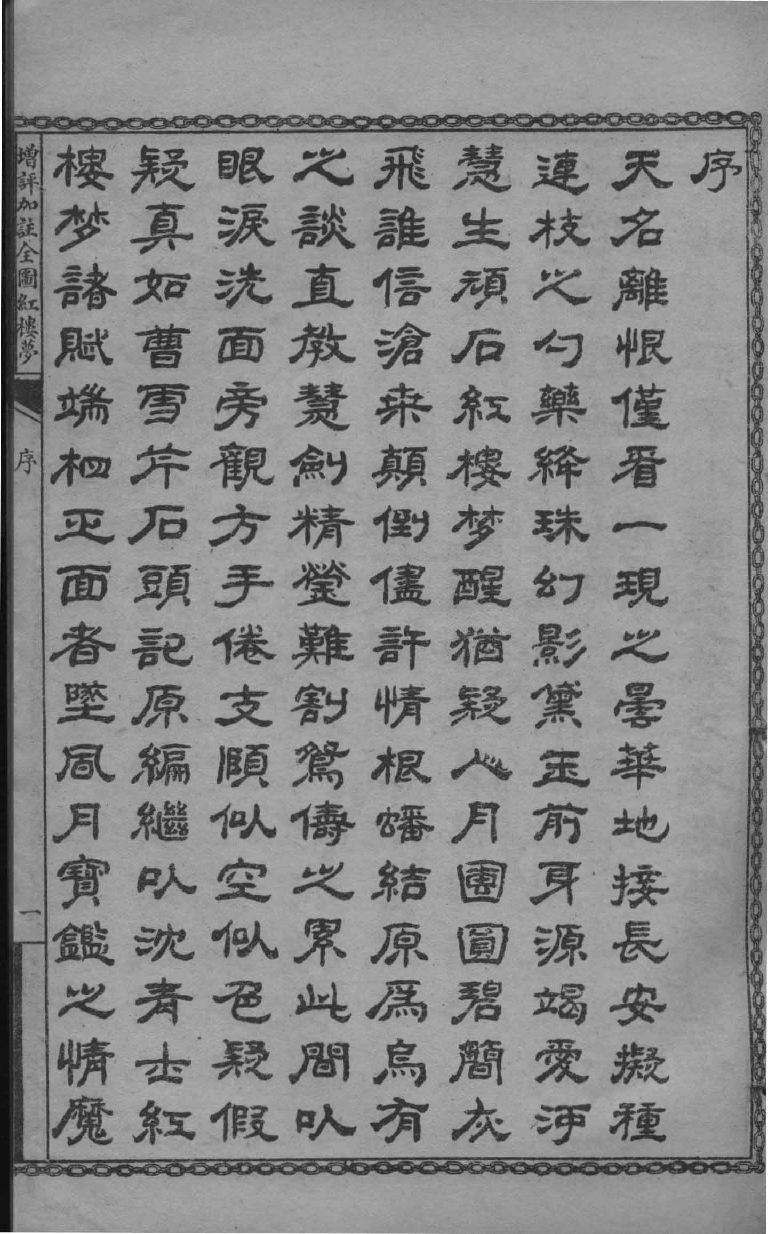 序
天名離恨僅看一現之曇華地接長安擬種
連枝之勺藥絳珠幻影黛玉前身源竭愛河
慧生頑石紅樓梦醒猶疑人月團圓碧簡灰
飛誰信滄桒顛倒儘許情根蟠結原爲烏有
之談直教慧劍精瑩難割鴛儔之累此間以
眼淚洗面旁觀方手倦支頤似空似色疑假
疑真如曹雪芹石頭記原編繼以沈青士紅
樓梦諸賦端相正面者墜風月寶鑑之情魔
增評加註全圖紅樓夢
序
一